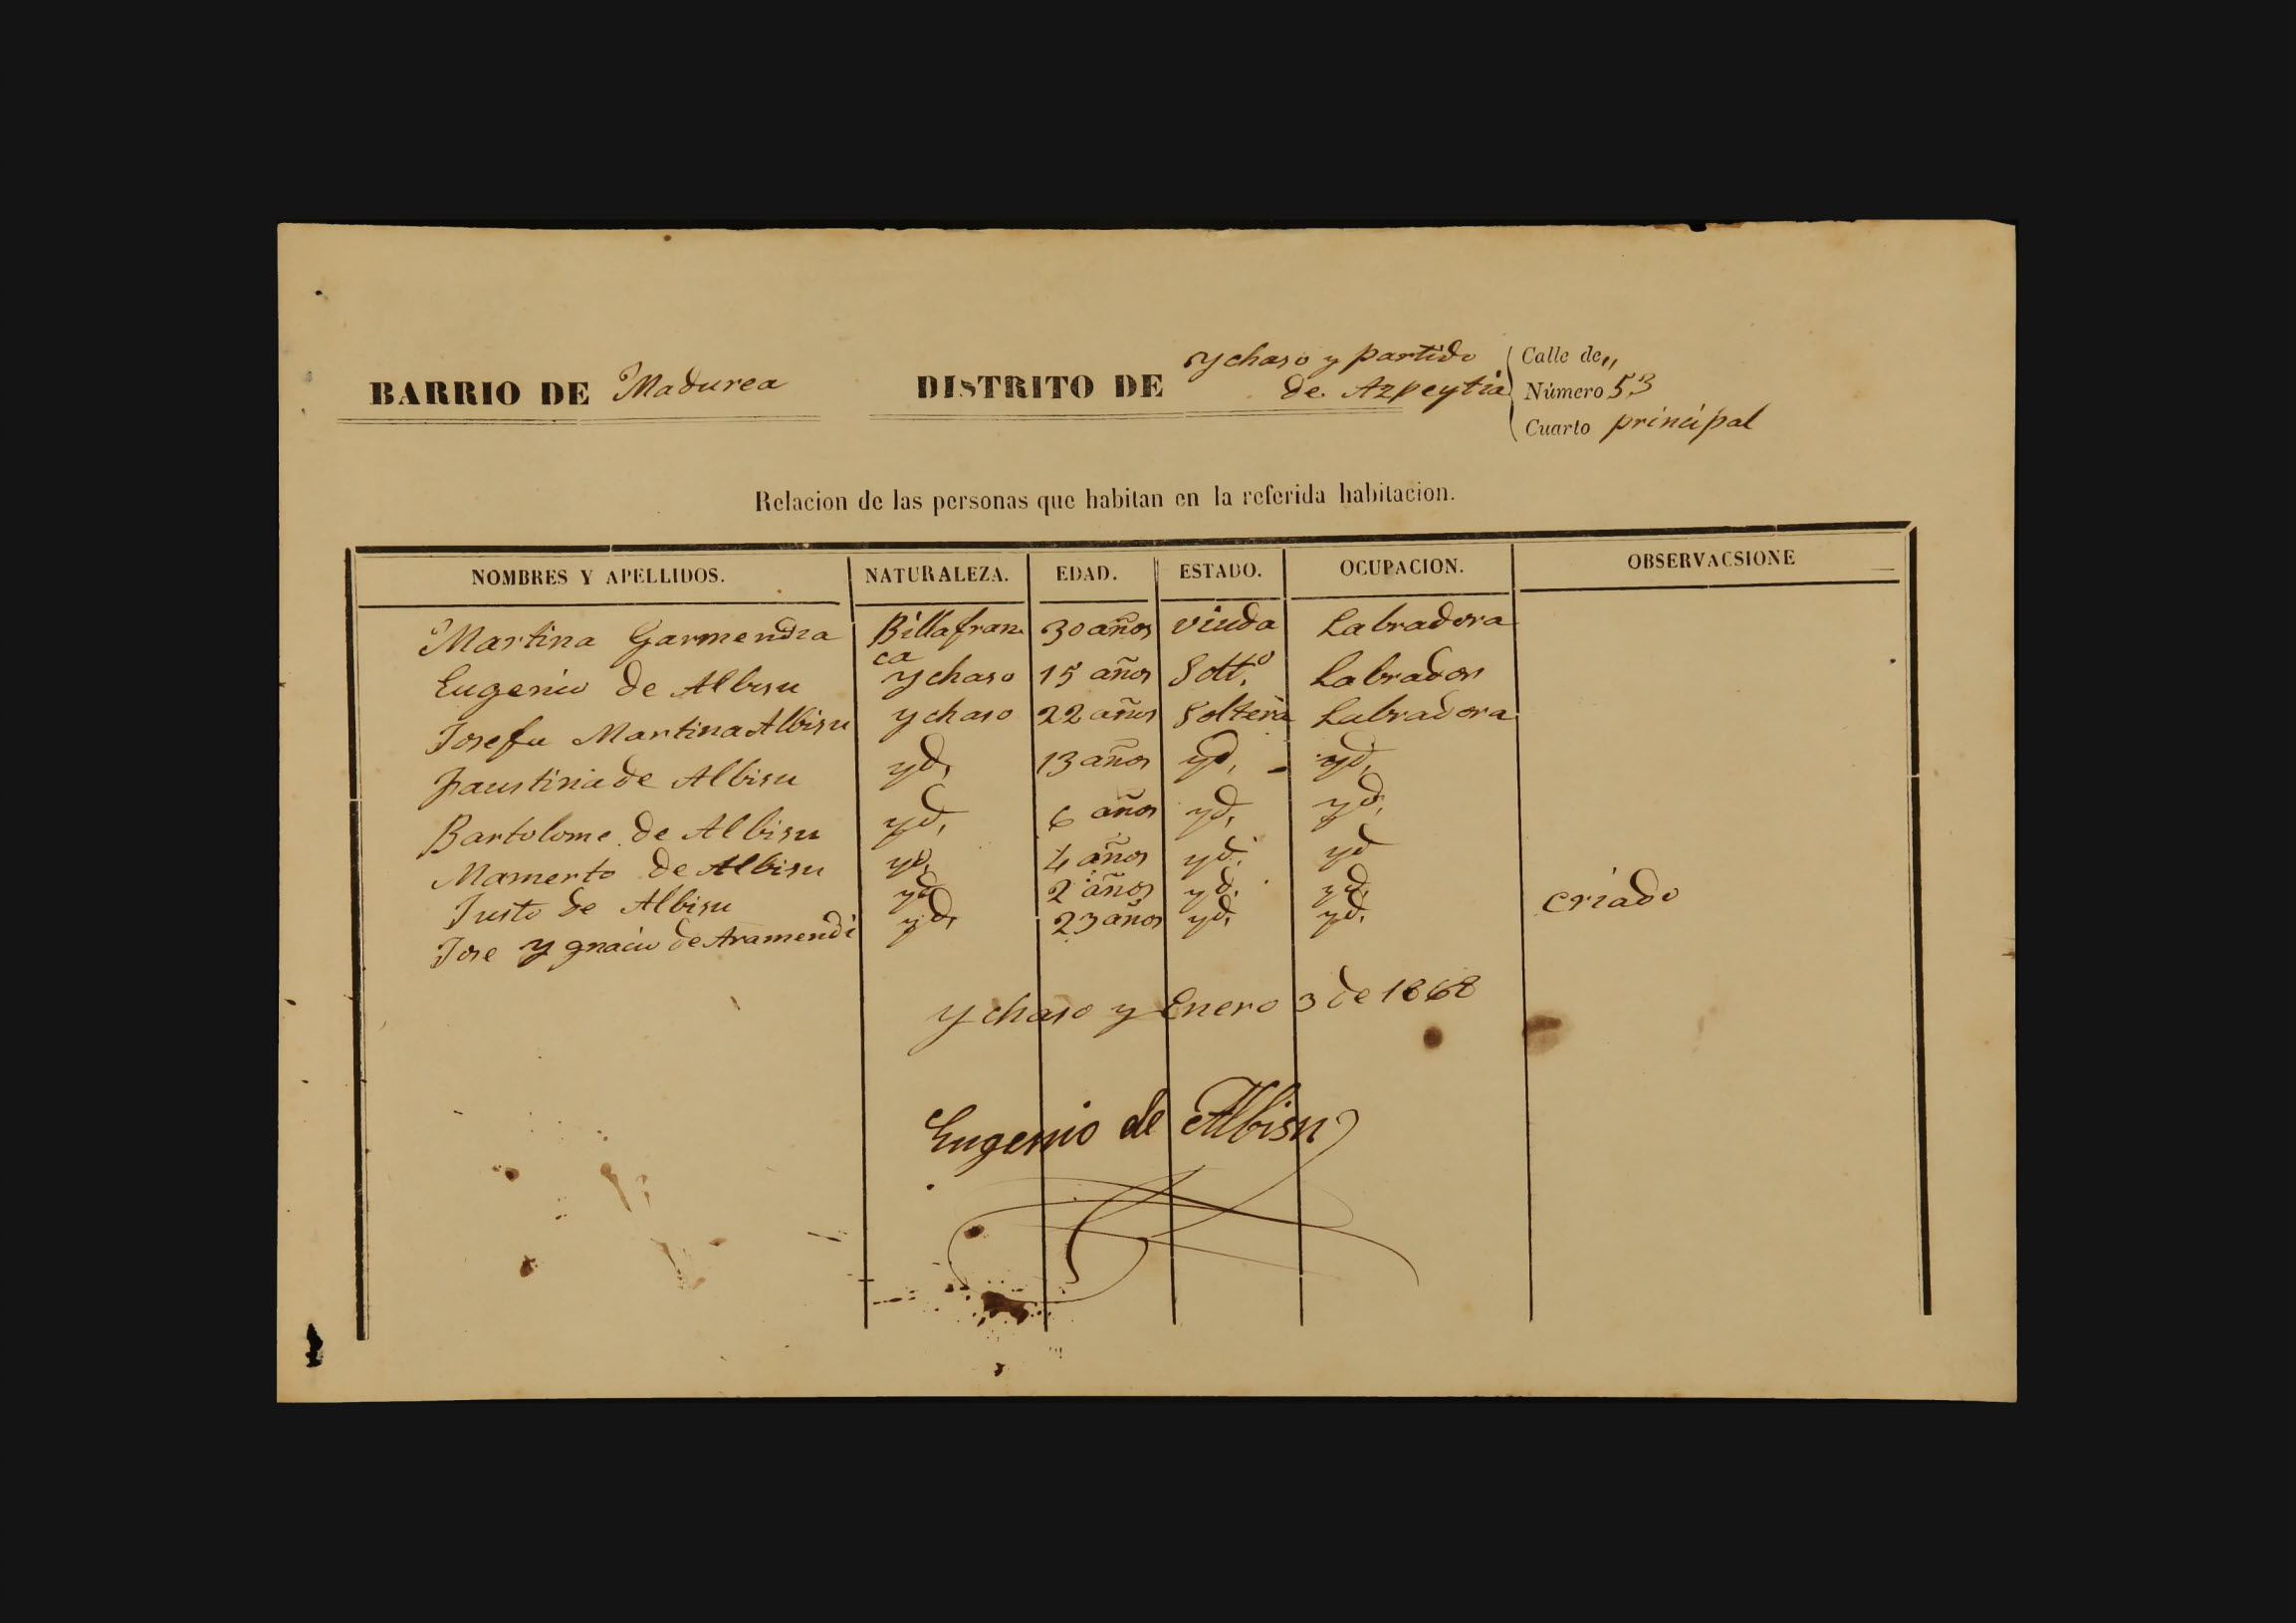 BARRIO DE Madurea DISTRITO DE ychaso y partido de Azpeytia
Calle de "
Número 53
Cuarto principal
Relacion de las personas que habitan en la referida habitacion.
NOMBRES Y APELLIDOS. NATURALEZA. EDAD. ESTADO. OCUPACION. OBSERVACSIONE
Martina Garmendia Billafranca 30 años viuda Labradora
Eugenio de Albisu ychaso 15 años Solt.º Labrador
Josefa Martina Albisu ychaso 22 años Soltera Labradora
Faustina de Albisu yd, 13 años yd, yd,
Bartolome de Albisu yd, 6 años yd, yd,
Mamerto de Albisu yd, 4 años yd. yd
Justo de Albisu yd 2 años yd. yd.
Jose ygnacio de Aramendi yd, 23 años yd. yd. criado
ychaso y Enero 3 de 1868
Eugenio de Albisu